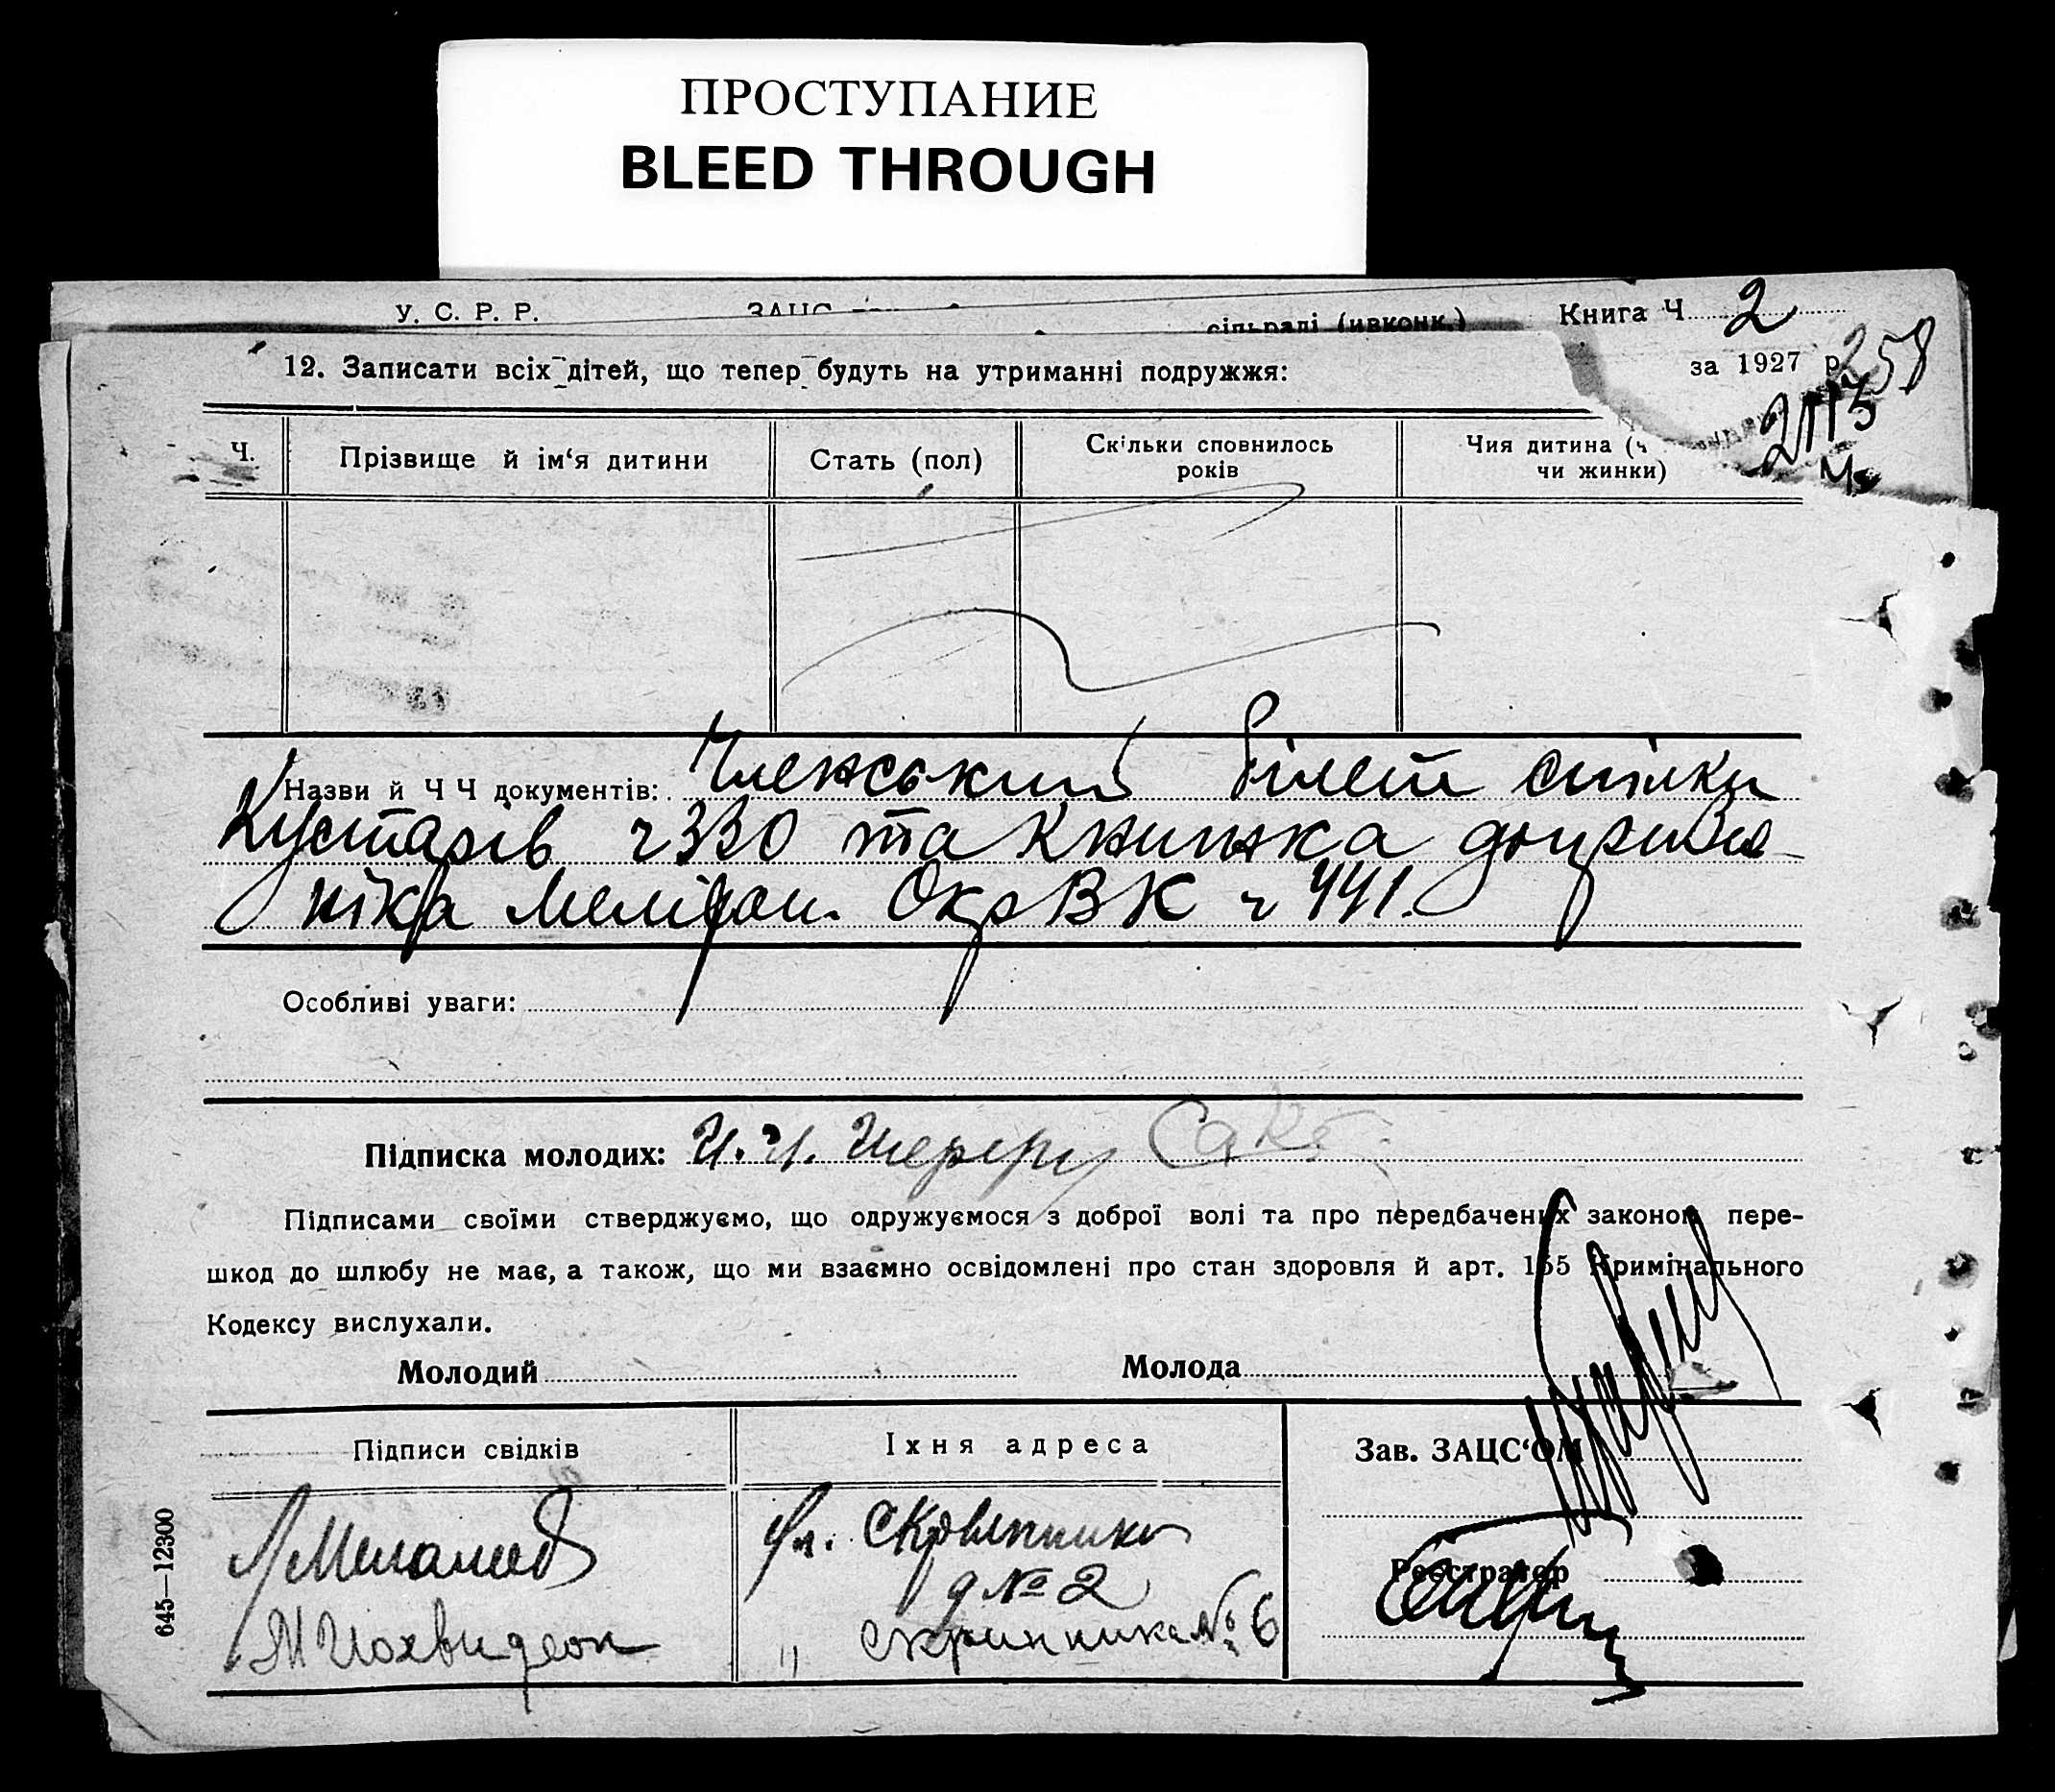 ПРОСТУПАНИЕ
BLEED THROUGH
У. С. Р. Р.
ЗАЦС
сільраді (ивконк.)
Книга Ч 2
за 1927 р.
258
2113
12. Записати всіх дітей, що тепер будуть на утриманні подружжя:
Ч.
Прізвище й ім‘я дитини
Стать (пол)
Скільки сповнилось
років
Чия дитина (ч
чи жинки)
Назви й Ч Ч документів: Членський білет спілки
Кустарів ч 330 та Книжка допризив
ніка Меліт. ОкрВК ч 441.
Особливі уваги:
Підписка молодих: И. И.
Підписами своїми стверджуємо, що одружуємося з доброї волі та про передбачених законом пере-
шкод до шлюбу не має, а також, що ми взаємно освідомлені про стан здоровля й арт. 155 Кримінального
Кодексу вислухали.
Молодий
Молода
Підписи свідків
Їхня адреса
Зав. ЗАЦС‘ОМ
Реєстратор
Меламед
ул. Скрыпника
д № 2
М Иохвидсон
" Скрипника № 6
645—12300